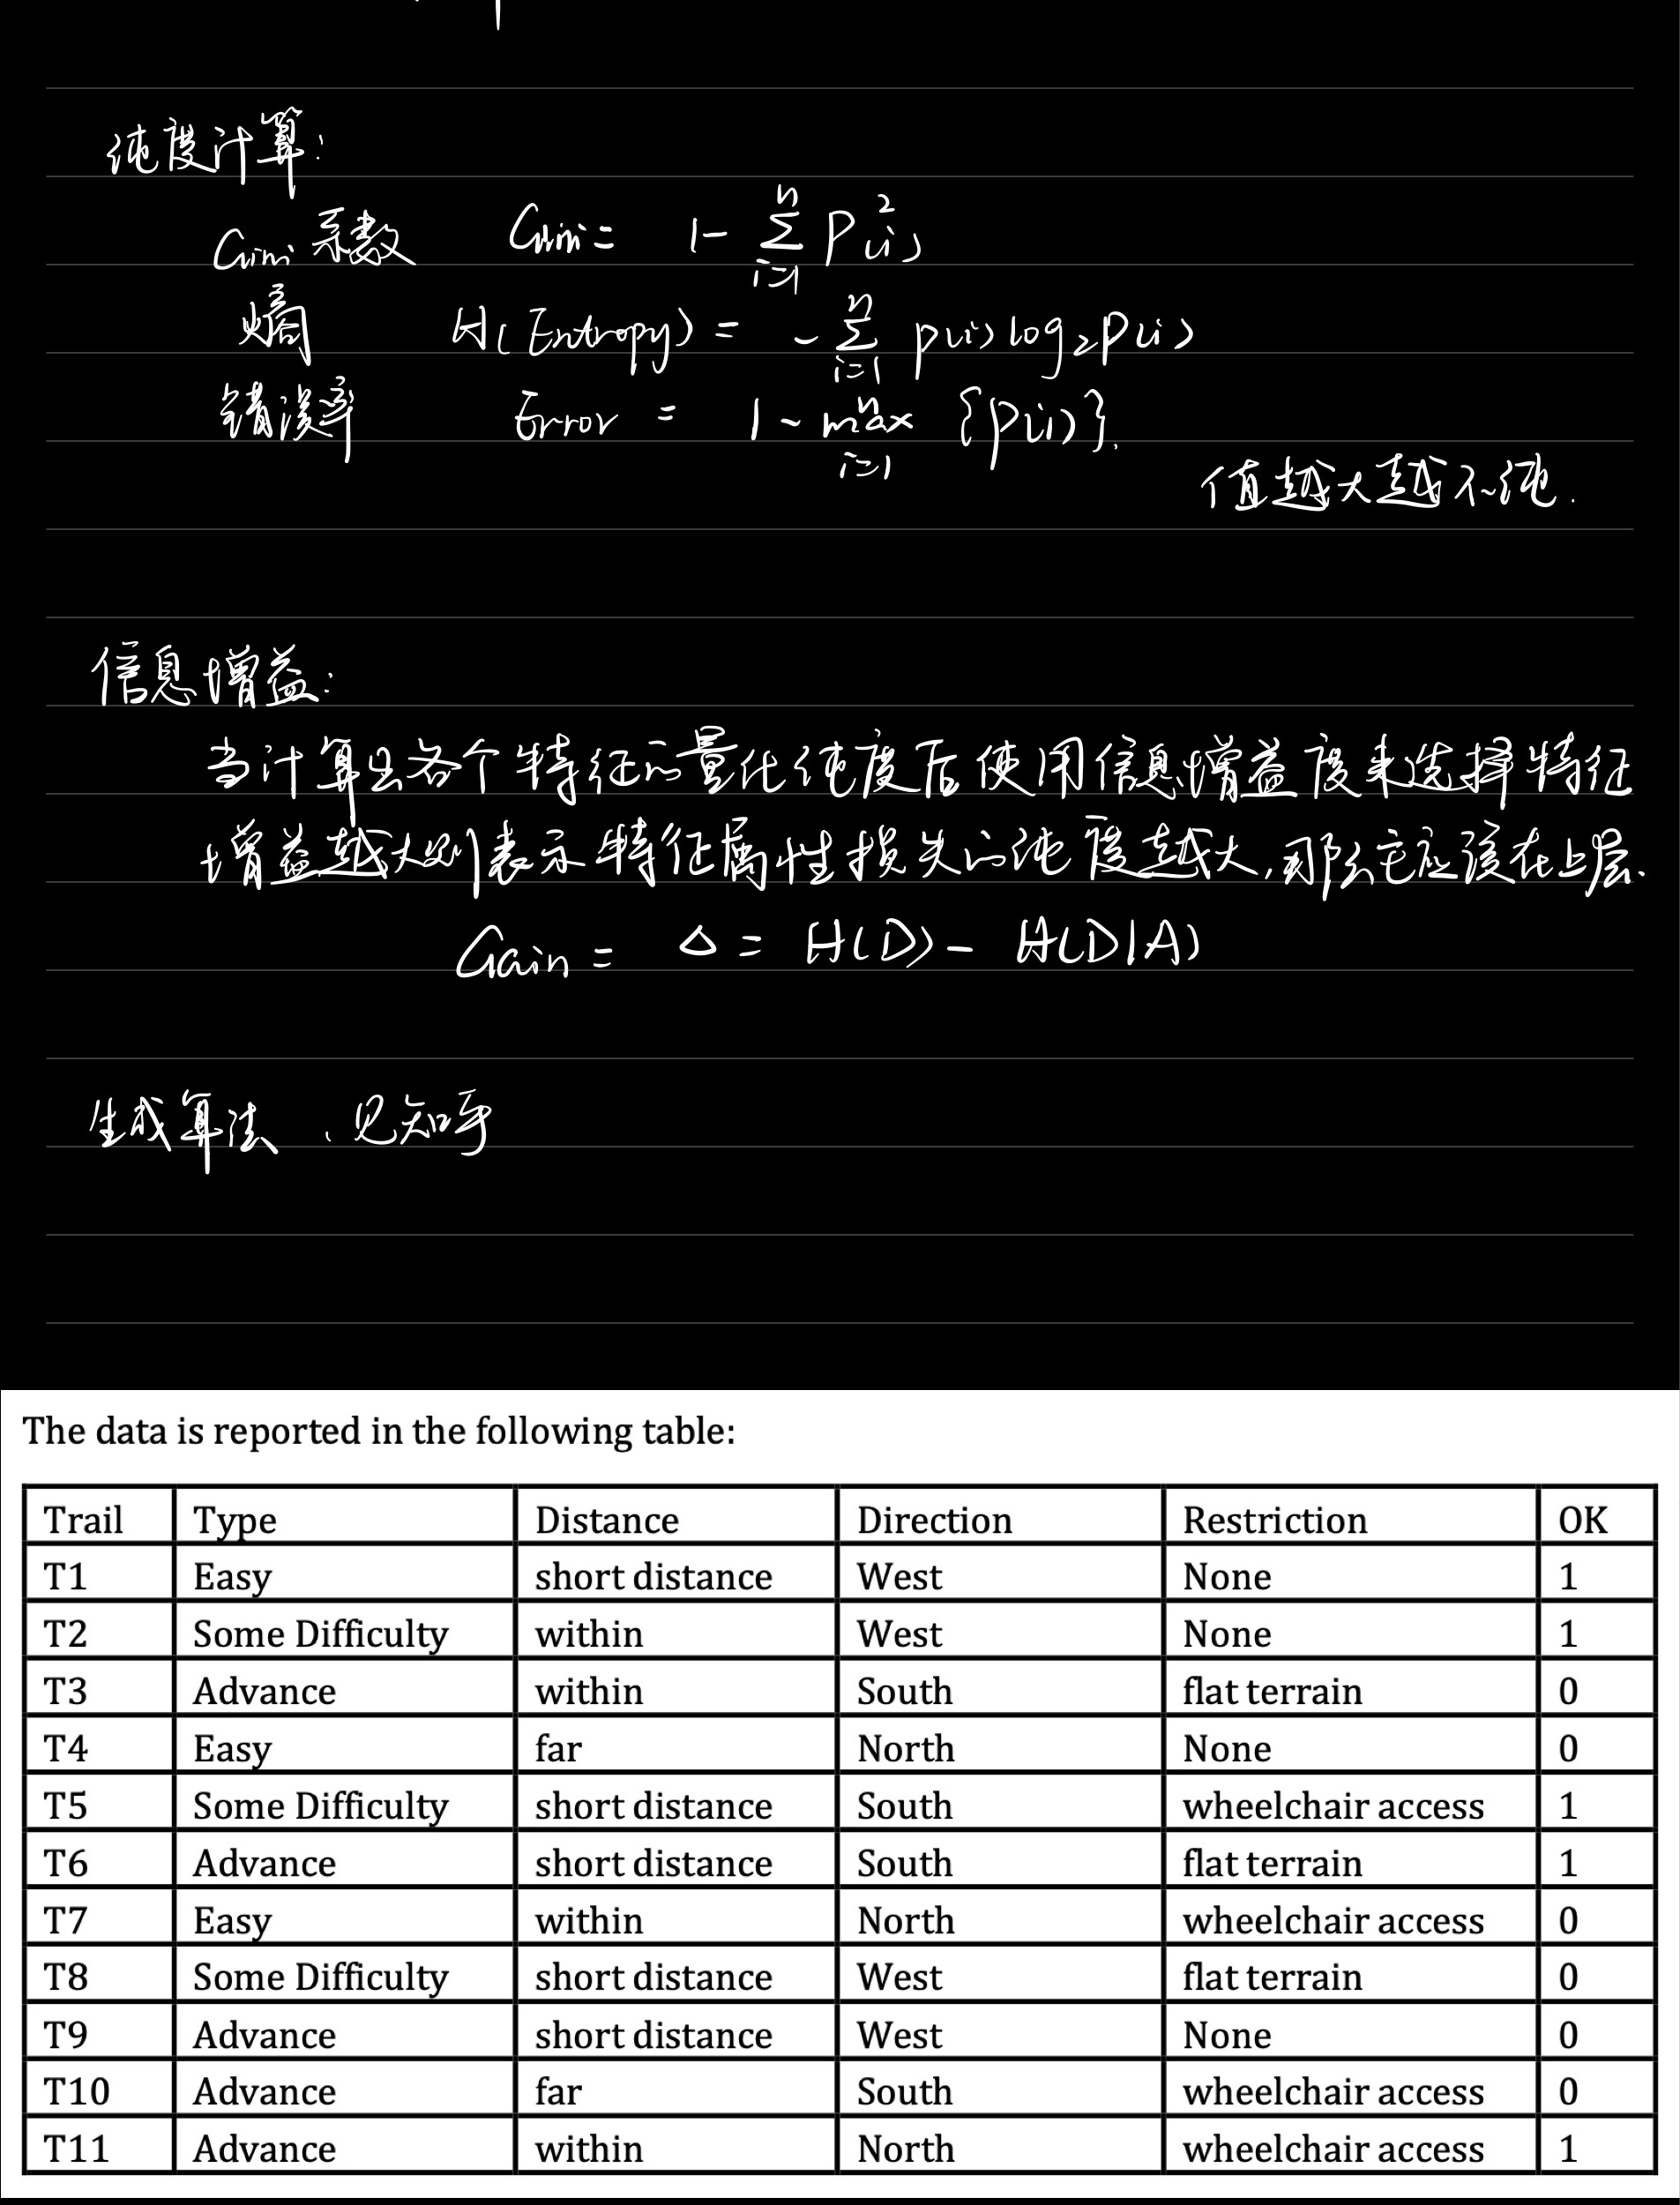 纯度计算:
Gini 系数 Gini = 1 - \sum_{i=1}^{n} P_{(i)}^2
熵 H(Entropy) = - \sum_{i=1}^{n} p(i) log_2 p(i)
错误率 Error = 1 - max_{i=1}^{n} {p(i)}.
值越大越不纯.
信息增益:
当计算出各个特征的量化纯度后使用信息增益度来选择特征
增益越大则表示特征属性损失的纯度越大,那么它应该在上层.
Gain = △ = H(D) - H(D|A)
生成算法、见知乎
The data is reported in the following table:
Trail Type Distance Direction Restriction OK
T1 Easy short distance West None 1
T2 Some Difficulty within West None 1
T3 Advance within South flat terrain 0
T4 Easy far North None 0
T5 Some Difficulty short distance South wheelchair access 1
T6 Advance short distance South flat terrain 1
T7 Easy within North wheelchair access 0
T8 Some Difficulty short distance West flat terrain 0
T9 Advance short distance West None 0
T10 Advance far South wheelchair access 0
T11 Advance within North wheelchair access 1